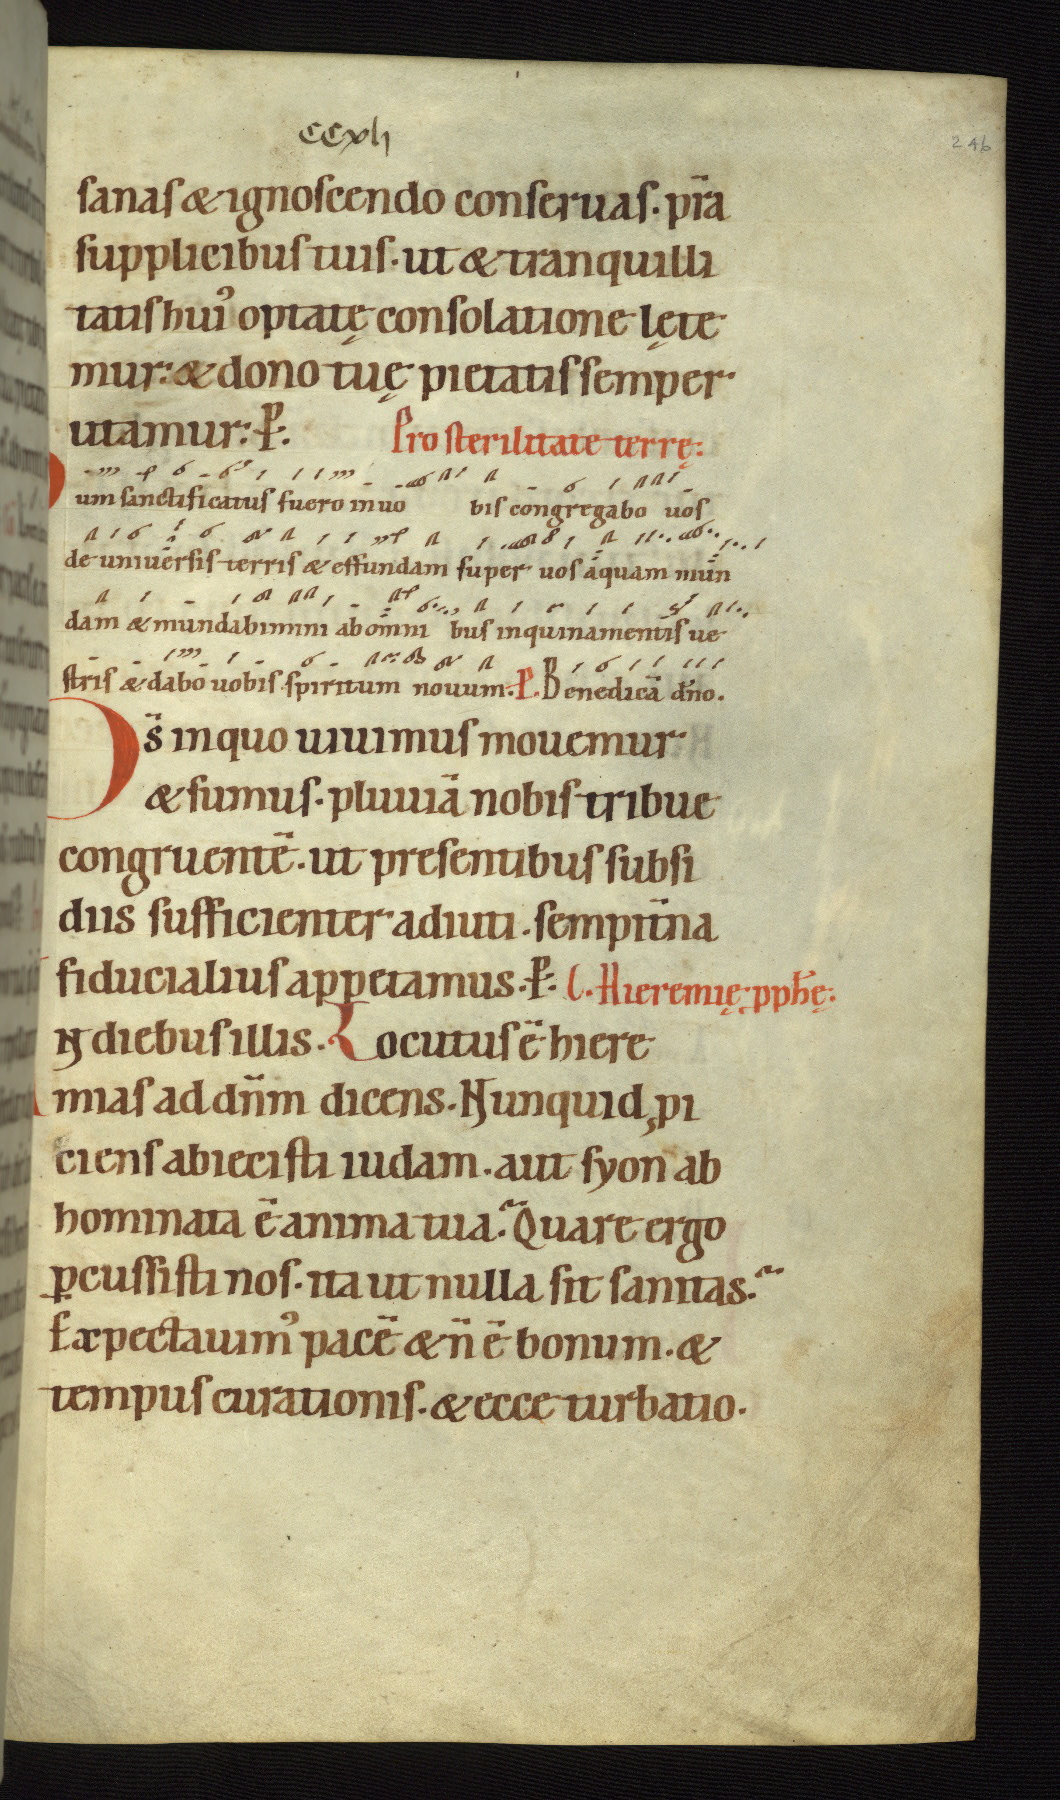 CCxlı
246
sanas & ignoscendo conseruas. pr̄a
supplicibus tuis. ut & tranquilli
tatis hui᾿ optatę consolatione lęte
mur: & dono tuę pietatis semper
utamur: P. Pro sterilitate terrę:
um sanctificatus fuero in uo bis congregabo uos
de uniuersis terris & effundam super uos aquam mun
dam & mundabimini ab omni bus inquinamentis ue
stris & dabo uobis spiritum nouum. P. Benedicā dn̄o.
Ds̄ in quo uiuimus mouemur
& sumus. pluuiā nobis tribue
congruentē. ut presentibus subsi
diis sufficienter adiuti. sempit̄na
fiducialius appetamus. P. L. Hieremię pph̄ę.
N diebus illis. Locutus ē hiere
mias ad dn̄m dicens. Nunquid ꝓi
ciens abiecisti iudam. aut syon ab
hominata ē anima tua? Quare ergo
ꝑcussisti nos. ita ut nulla sit sanitas?
Expectauim᾿ pacē & n̄ ē bonum. &
tempus curationis. & ecce turbatio.